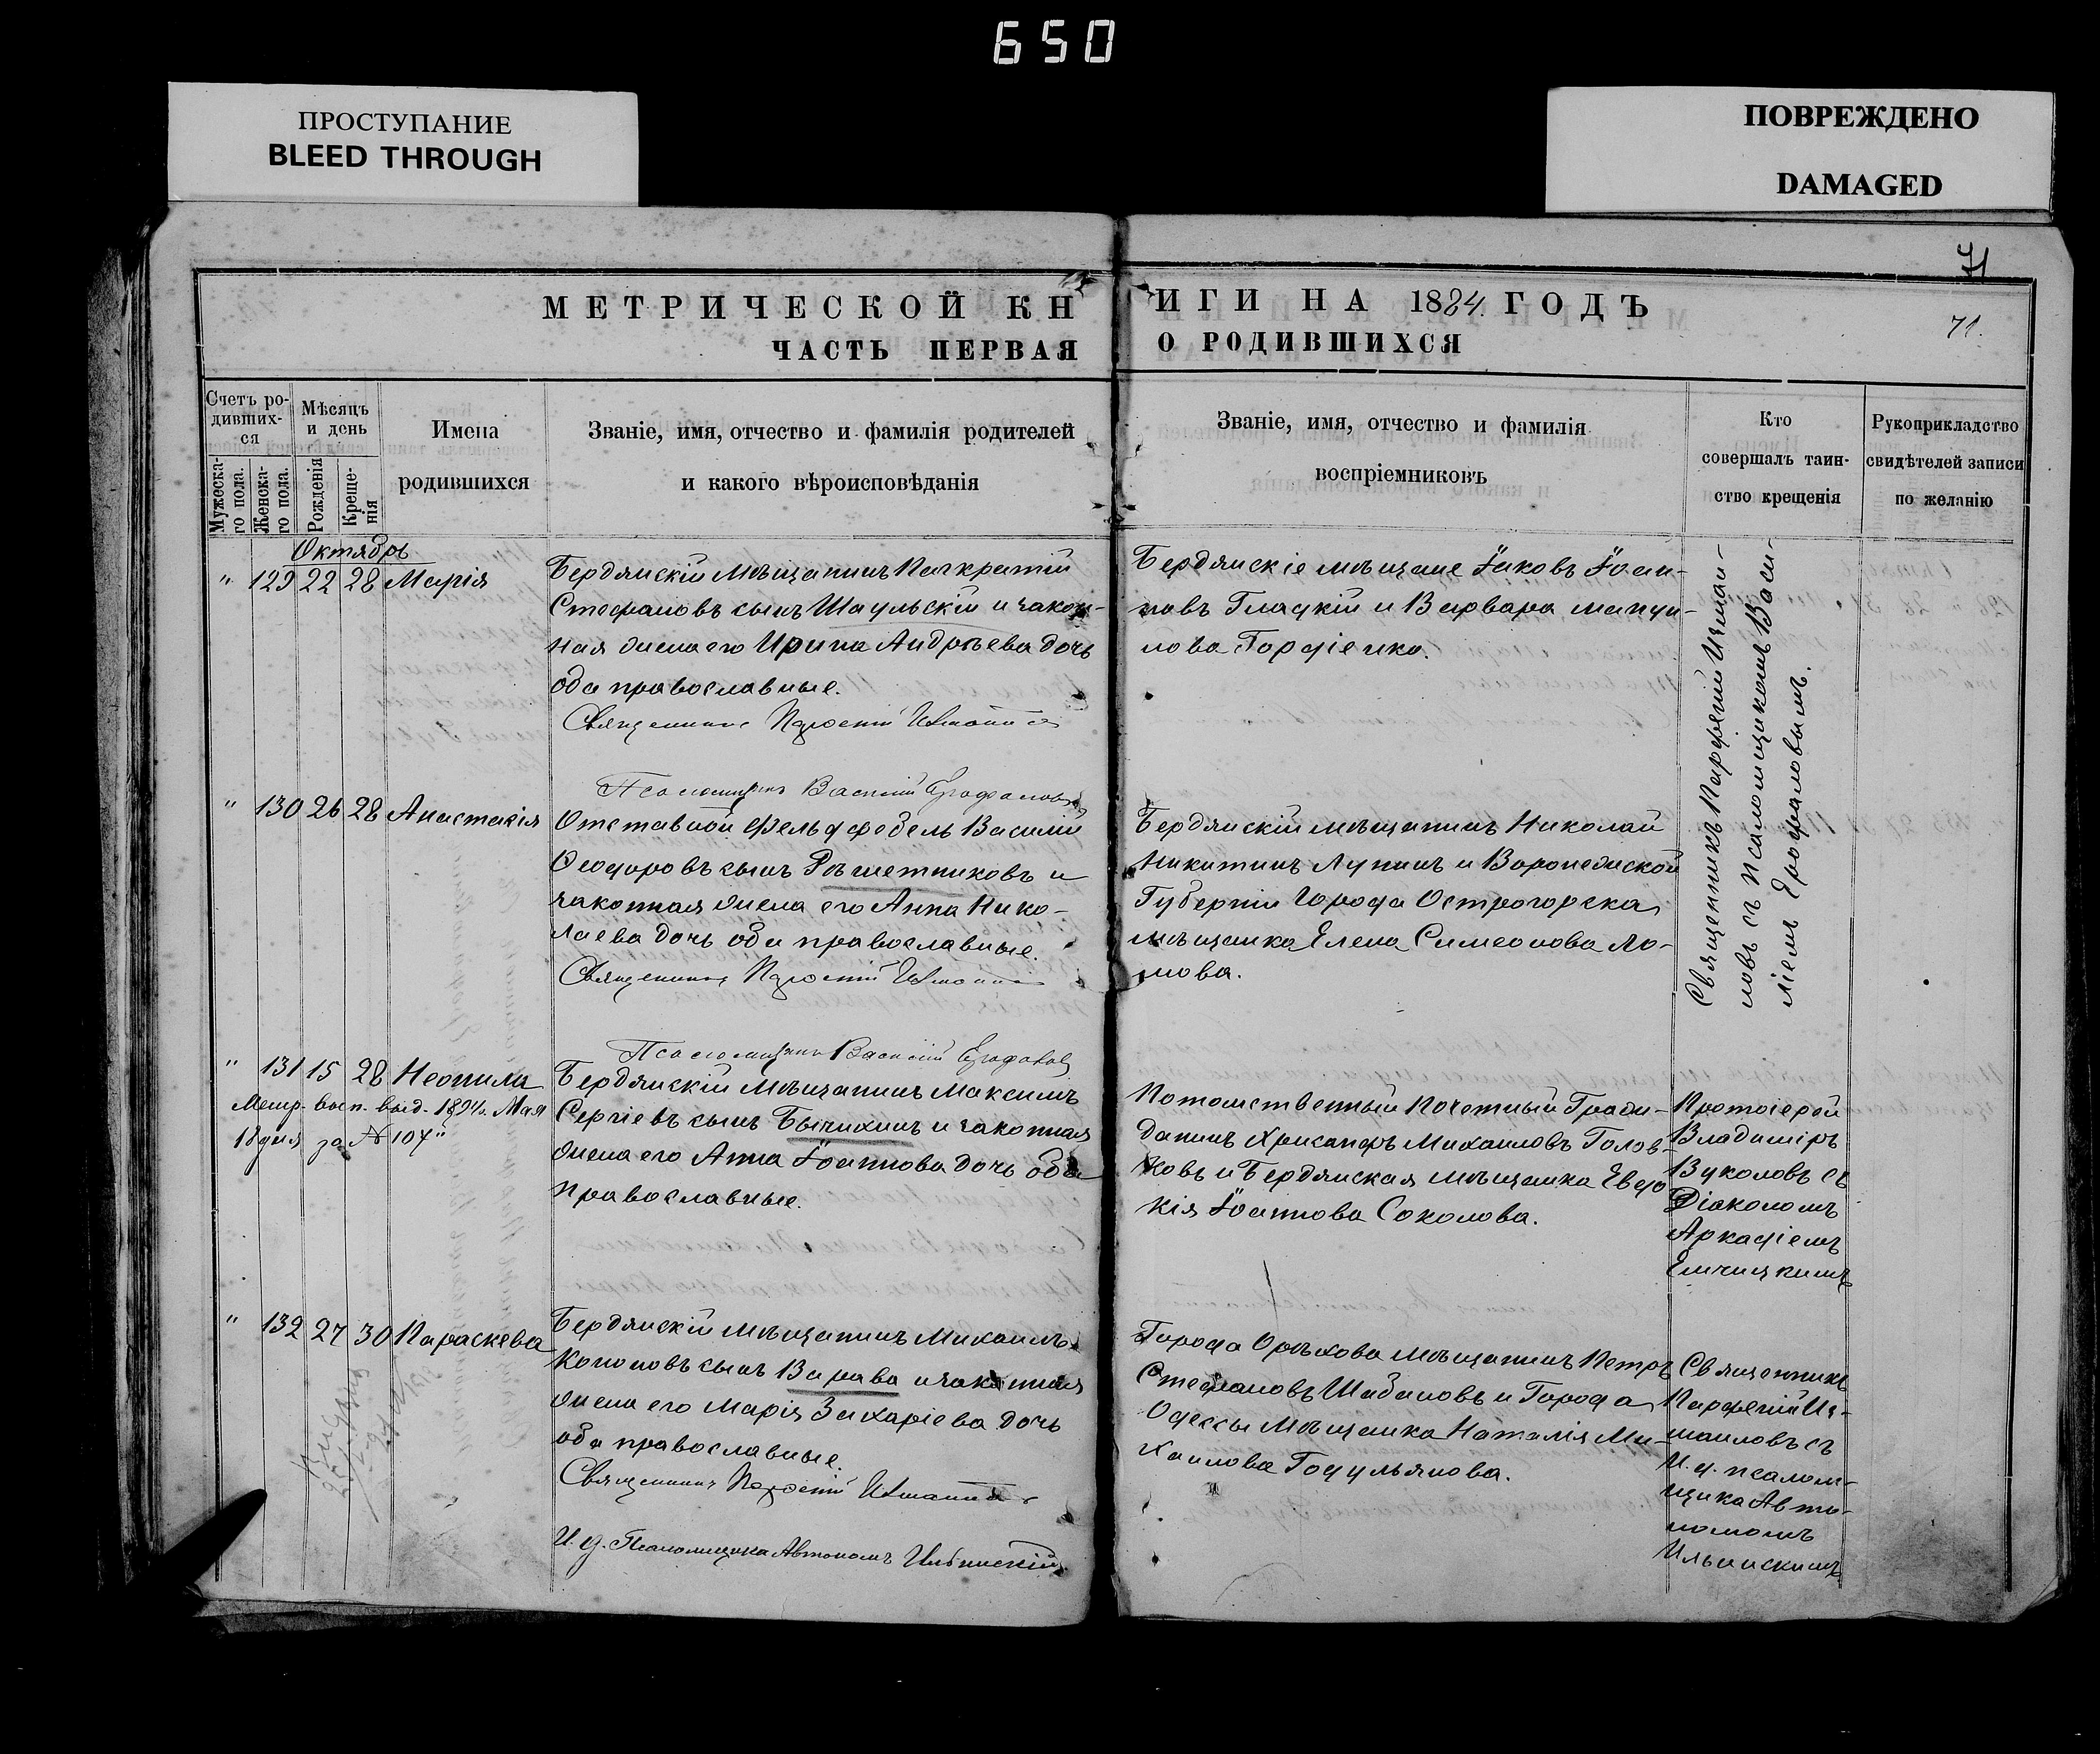 650
ПРОСТУПАНИЕ
BLEED THROUGH
ПОВРЕЖДЕНО
DAMAGED
71
МЕТРИЧЕСКОЙ КНИГИ НА 1884 ГОДЪ
71.
ЧАСТЬ ПЕРВАЯ О РОДИВШИХСЯ
Счетъ ро-
дивших-
ся
Мужеска-
го пола.
Женска-
го пола.
Мѣсяцъ
и день
Рожденія
Креще-
нія
Имена
родившихся
Званіе, имя, отчество и фамилія родителей
и какого вѣроисповѣданія
Званіе, имя, отчество и фамилія
воспріемниковъ
Кто
совершалъ таин-
ство крещенія
Рукоприкладство
свидѣтелей записи
по желанію
Октябрь
" 129 22 28 Марія
Бердянскій мѣщанинъ Панкратій
Стефановъ сынъ Шаульскій и закон-
ная жена его Ирина Андрѣева дочь
оба православные.
Священникъ Парфеній
Псаломщикъ Василій Ерофаловъ
Бердянскіе мѣщане Іаковъ Іоан-
новъ Гладкій и Варвара Мануи-
лова Гордіенко.
Священникъ Парфеній Измаи-
ловъ съ псаломщикомъ Васи-
ліемъ Ерофаловымъ.
" 130 26 28 Анастасія
Отставной Фельдфебель Василій
Ѳеодоровъ сынъ Рѣшетниковъ и
законная жена его Анна Нико-
лаева дочь оба православные.
Священникъ Парфеній
Псаломщикъ Василій Ерофаловъ
Бердянскій мѣщанинъ Николай
Никитинъ Лунинъ и Воронежской
Губерніи Города Острогорска
мѣщанка Елена Симеонова Ло-
мова.
" 131 15 28 Неонила
Метр. вып. выд. 1894 г. Мая
18 дня за № 104"
Бердянскій мѣщанинъ Максимъ
Сергіевъ сынъ Бычихинъ и законная
жена его Анна Іоаннова дочь оба
православные.
Потомственный Почетный Граж-
данинъ Хрисанфъ Михаиловъ Голов-
ковъ и Бердянская мѣщанка Евдо
кія Іоаннова Соколова.
Протоіерей
Владиміръ
Вуколовъ съ
Діакономъ
Аркадіемъ
" 132 27 30 Параскева
Бердянскій мѣщанинъ Михаилъ
Кононовъ сынъ Варава и законная
жена его Марія Захаріева дочь
оба православные.
Священникъ Парфеній
И. д. Псаломщика Автономъ Ильинскій
Города Орѣхова мѣщанинъ Петръ
Стефановъ Шабановъ и Города
Одессы мѣщанка Наталія Ми-
хаилова Годульянова.
Священникъ
Парфеній Из-
маиловъ съ
И. д. псалом-
щика Авто-
номомъ
Ильинскимъ